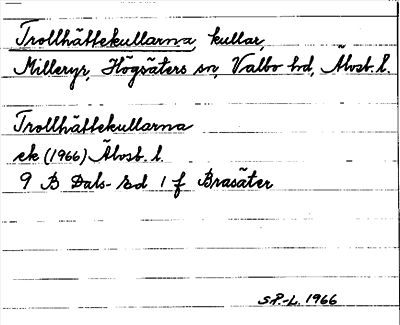 Trollhättekullarna, kullar,
Milleryr, Högsäters sn, Valbo hd, Älvsb. l.
Trollhättekullarna
ek (1966) Älvsb. l.
9 B Dals-Ed 1 f Brasäter
S.P.-L. 1966